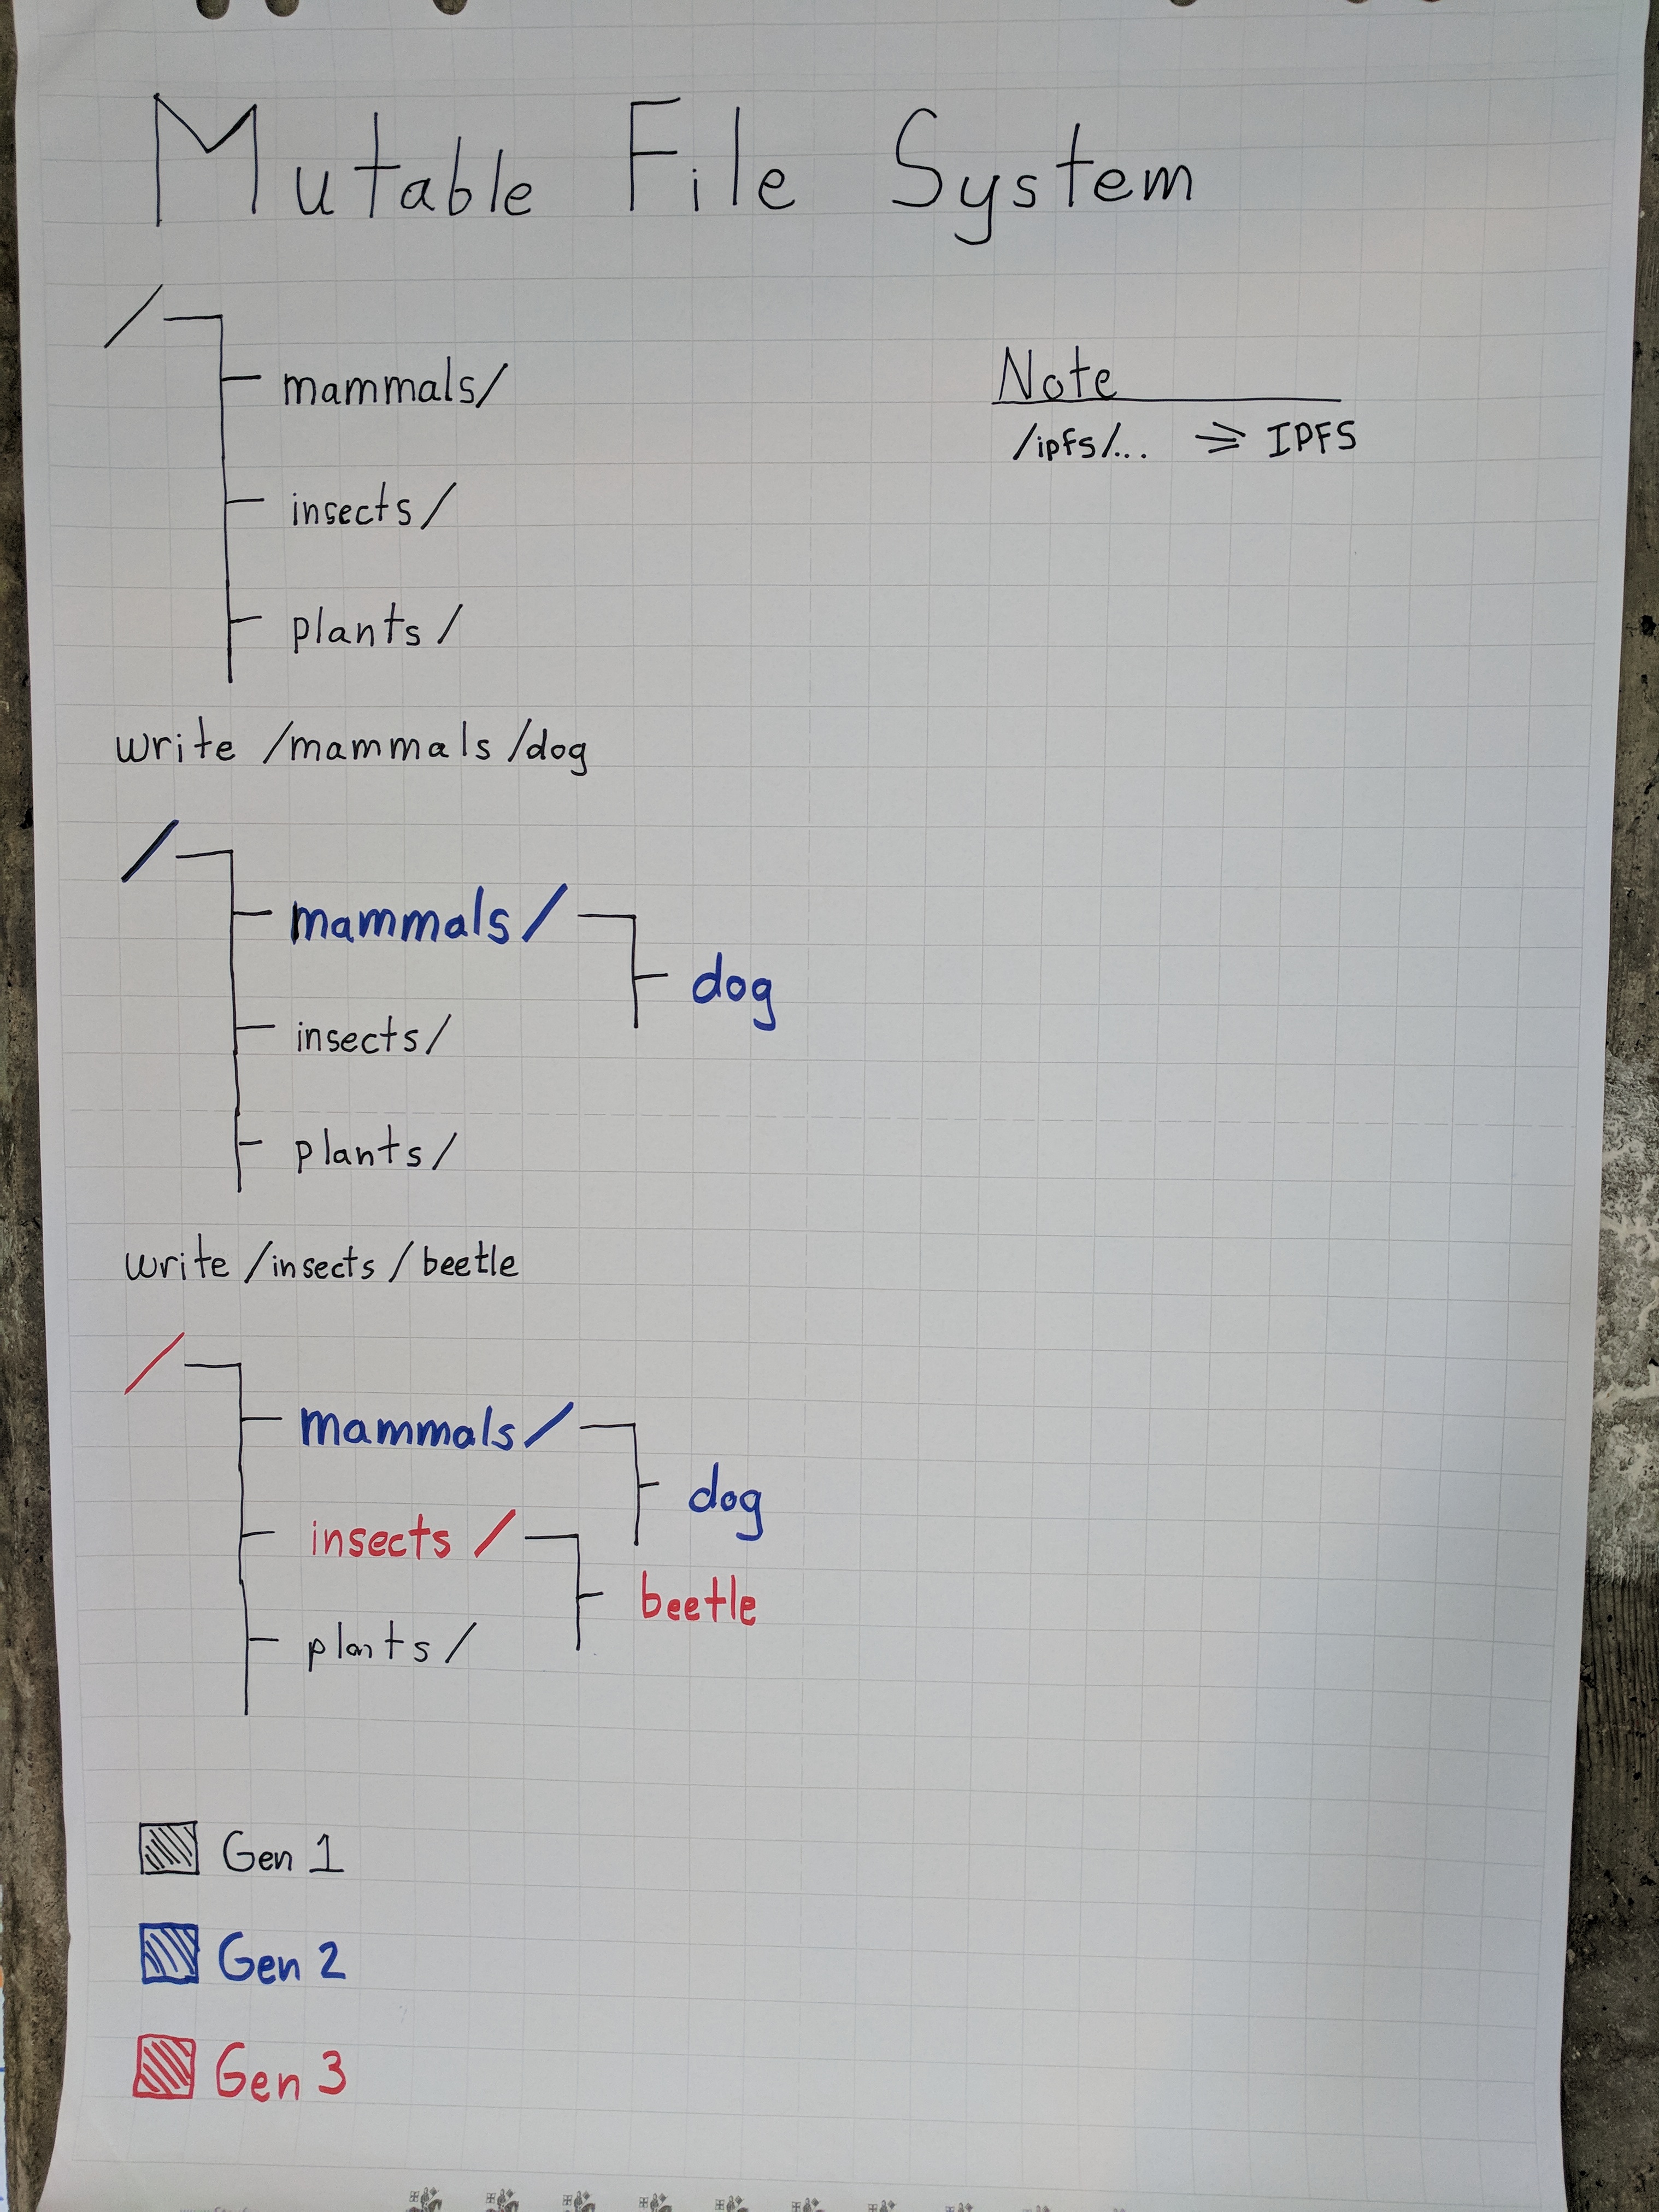 Mutable File System
/
mammals/
Note
/ipfs/... => IPFS
insects/
plants/
write /mammals/dog
/
mammals/
dog
insects/
plants/
write /insects/beetle
/
mammals/
dog
insects/
beetle
plants/
Gen 1
Gen 2
Gen 3